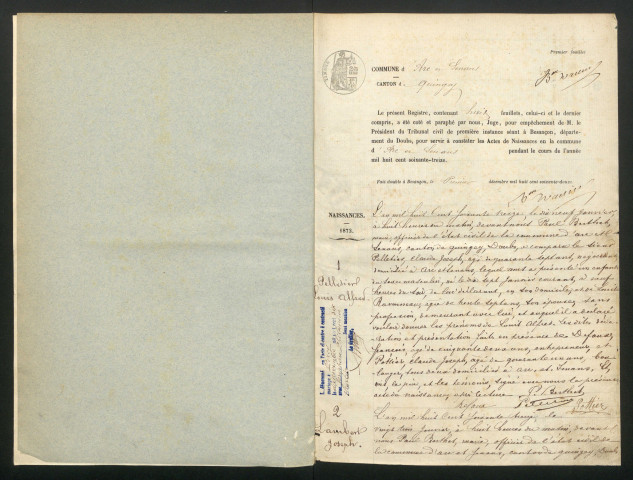 Premier feuillet
COMMUNE d'Arc et Senans
CANTON de Quingey
Le présent Registre, contenant huit feuillets, celui-ci et le dernier
compris, a été coté et paraphé par nous, Juge, pour empêchement de M. le
Président du Tribunal civil de première instance séant à Besançon, départe-
ment du Doubs, pour servir à constater les Actes de Naissances en la commune
d'Arc et Senans pendant le cours de l'année
mil huit cent soixante-treize.
Fait double à Besançon, le décembre mil huit cent soixante-douze.
NAISSANCES.
1873.
1
Pelletier
Louis Alfred
L'an mil huit cent soixante treize, le dix neuf janvier
à huit heures du matin, devant nous Paul Berthet,
maire, officier de l'état civil de la commune d'arc et
senans, canton de quingey, Doubs, a comparu le sieur
Pelletier, claude Joseph, agé de quarante sept ans,
domicilié à arc et senans, lequel nous a présenté un enfant
du sexe masculin, né le dix sept janvier courant, à neuf
heures du soir, de lui déclarant, en son domicile, et de
agée de trente sept ans, son épouse, sans
profession, demeurant avec lui, et auquel il a déclaré
vouloir donner les prénoms de Louis Alfred. Les dites décla-
rations et présentation faites en présence de
françois, agé de cinquante deux ans, et
Pottier, claude Joseph, agé de quarante un ans, bou-
langer, tous deux domiciliés à arc et senans. Et,
ont le père et les témoins, signé avec nous le présent
acte de naissance, après lecture. P. Berthet
Pottier
2
Lambert
Joseph
L'an mil huit cent soixante treize, le
vingt trois janvier, à huit heures du matin, devant
nous Paul Berthet, maire, officier de l'état civil de
la commune d'arc et senans, canton de quingey, Doubs